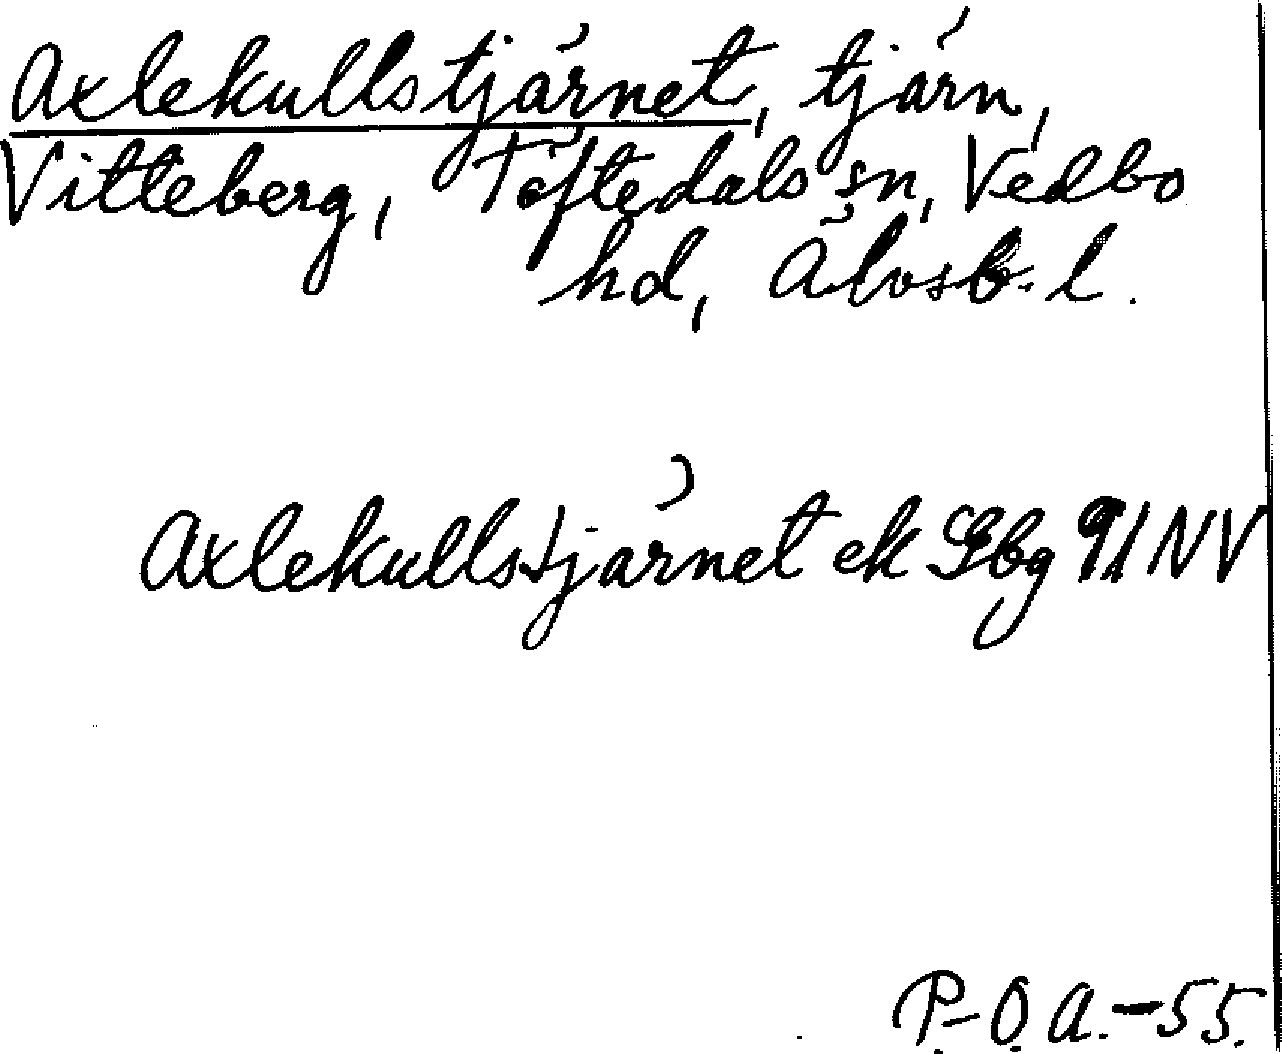 Axlekullstjärnet, tjärn,
Vitteberg, Töftedals sn, Vedbo
hd, Älvsb. l.
Axlekullstjärnet ek Gbg 91 NV
P.-O. A. -55.